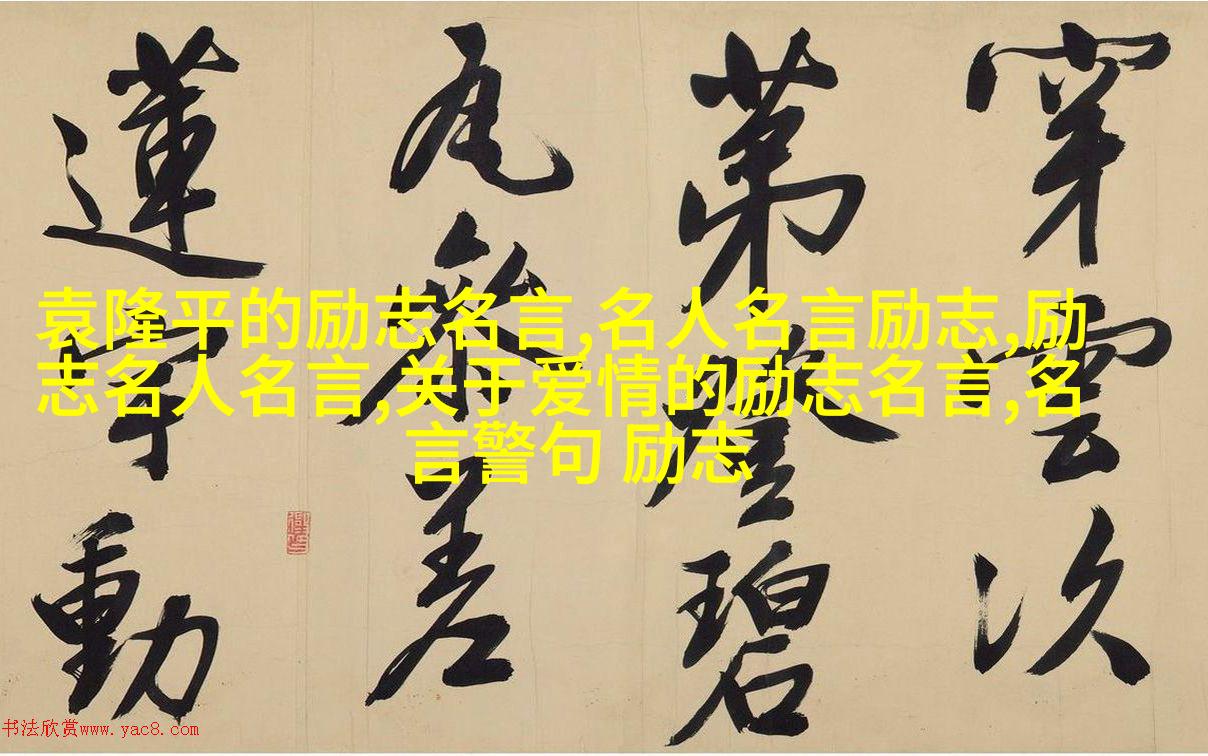 穿雲次
第登碧
瓦參差
蓮宇動
袁隆平的励志名言,名人名言励志,励
志名人名言,关于爱情的励志名言,名
言警句 励志
书法欣赏www.yac8.com